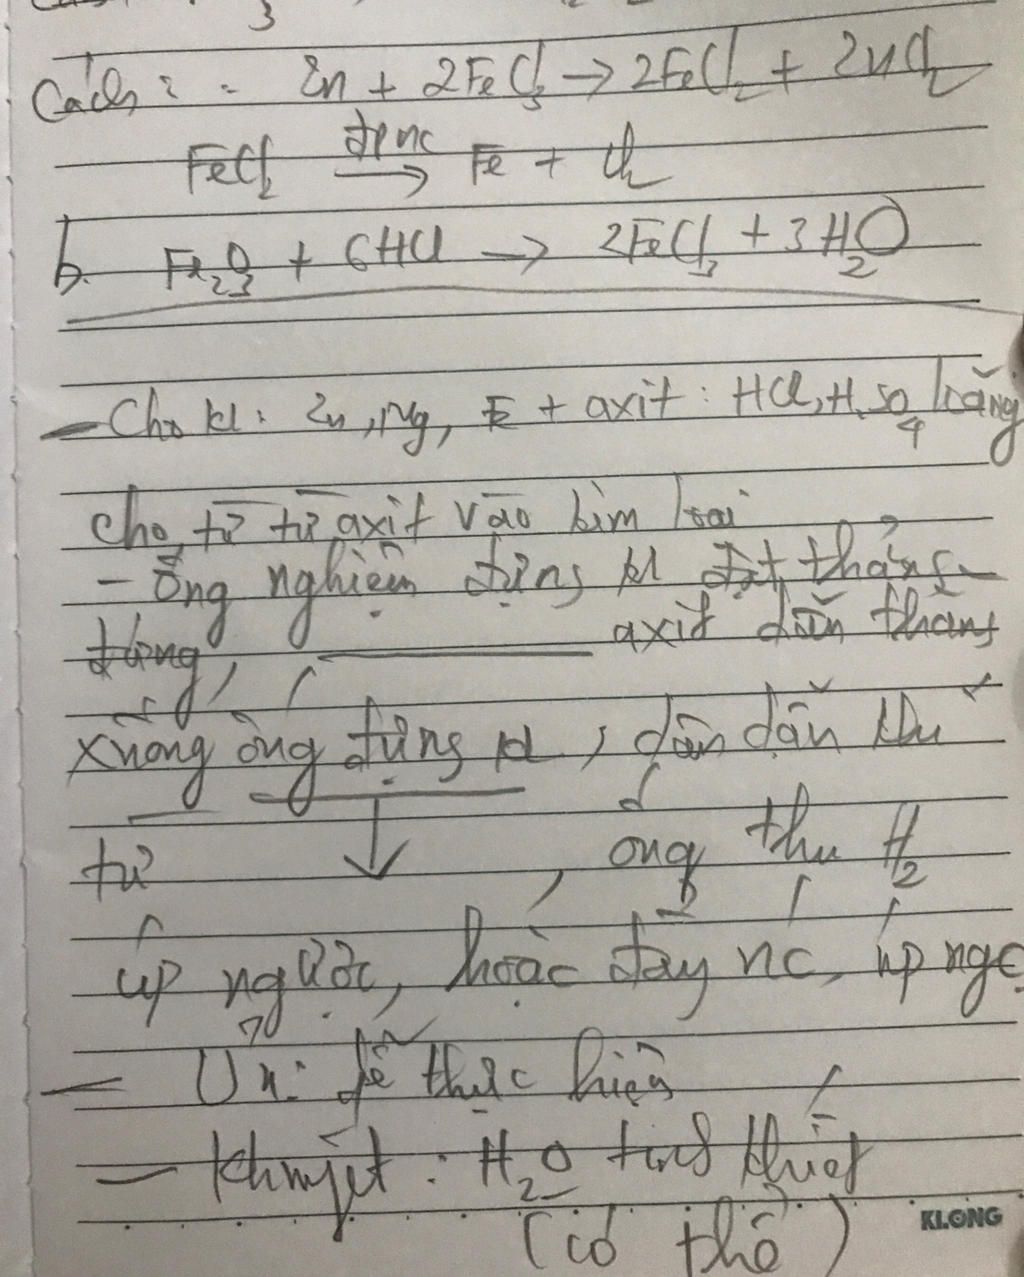 3
Cách 2: Zn + 2FeCl3 → 2FeCl2 + ZnCl2
FeCl2 đpnc → Fe + Cl2
b. Fe2O3 + 6HCl → 2FeCl3 + 3H2O
- Cho kl: Zn, Mg, Fe + axit: HCl, H2SO4 loãng
cho từ từ axit vào kim loại
- Ống nghiệm đựng kl đặt thẳng
đứng, axit dẫn thẳng
xuống ống đựng kl, dẫn khí
từ ↓, ống thu H2
úp ngược, hoặc đẩy nc, úp ngc
- Ưu: dễ thực hiện
- Khuyết: H2O tinh khiết
(có thể)
KLONG